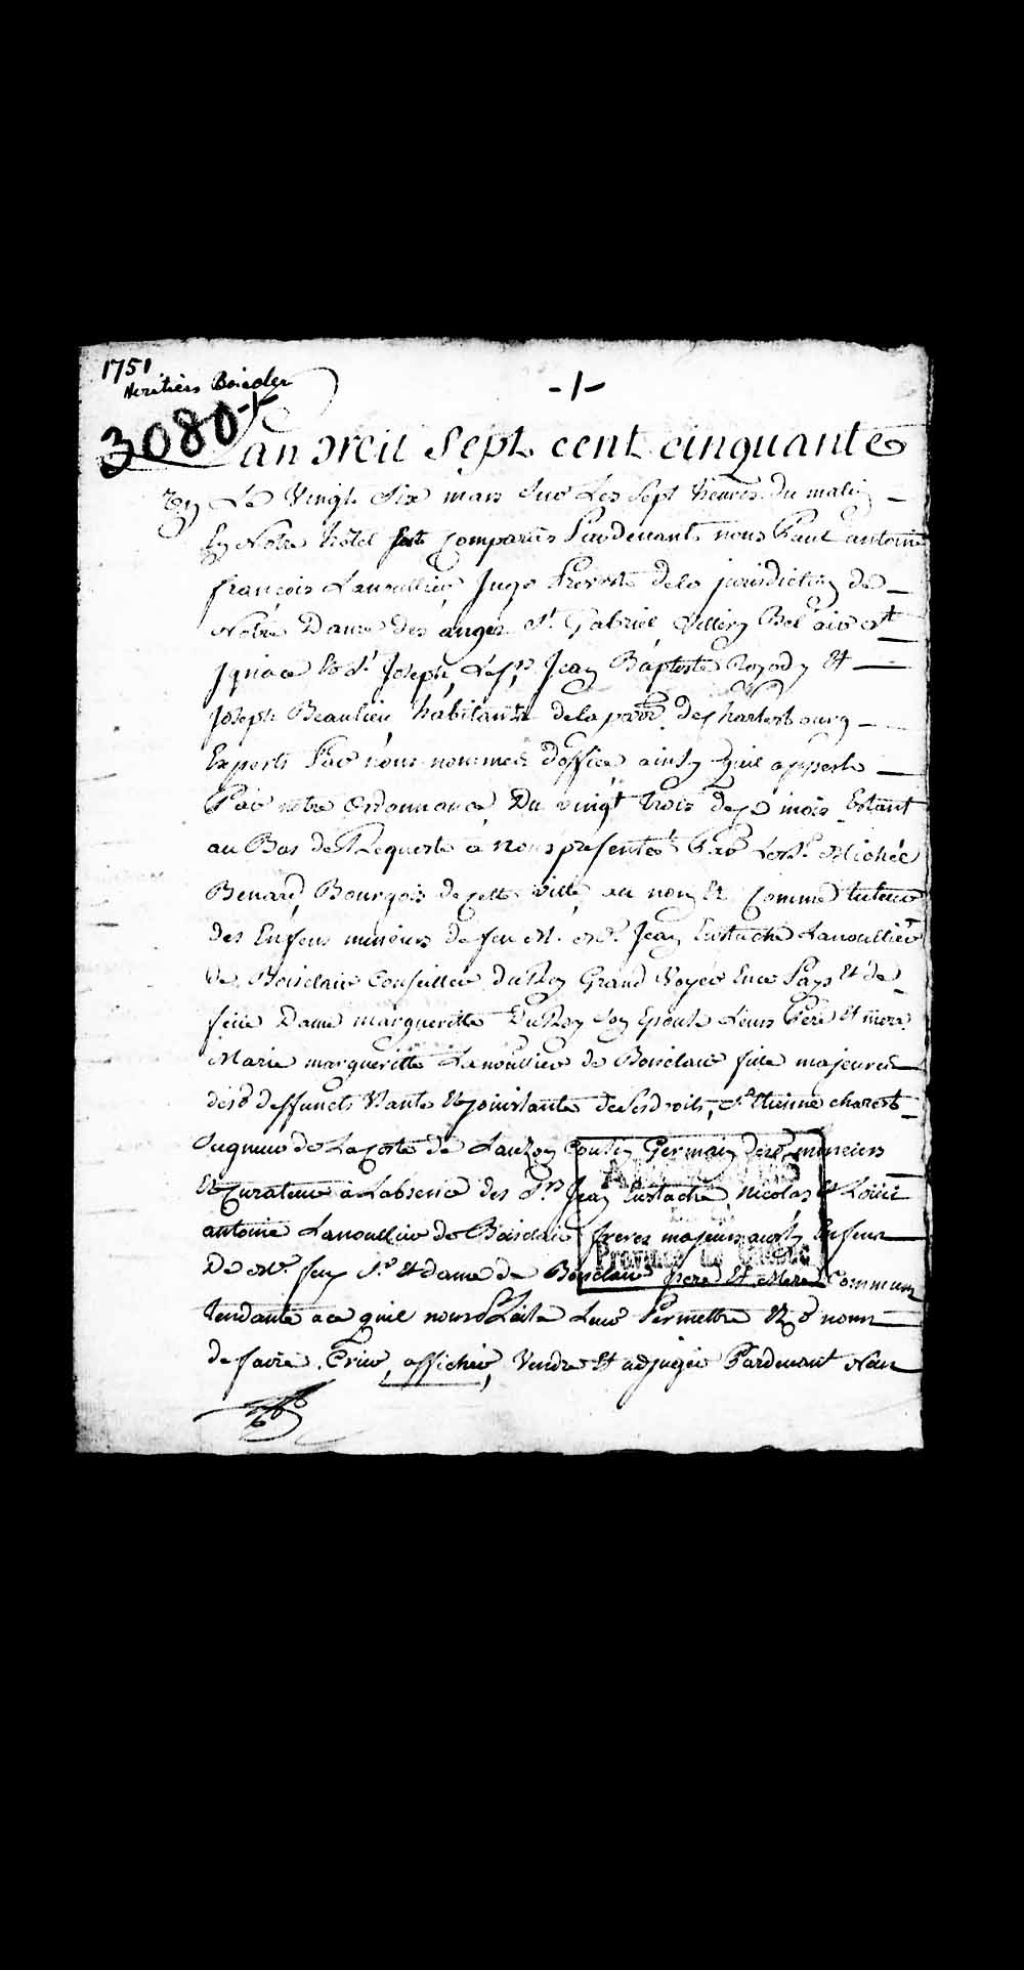 1751
Heritiers Boiscler
-1-
3080
Lan Mil Sept cent cinquante
un Le Vingt Six mars Sur Les Sept heures du matin
En Notre hôtel sont Comparus Pardevant nous Paul antoine
françois Lanoullier Juge Prevost dela jurisdiction de
Notre Dame des anges St. Gabriel Sillery Bel air et
Ignace Les Srs. Jean Baptiste Et
Joseph Beaulieu habitants dela parr. de Charlesbourg
Experts Par nous nommés d'office ainsy quil apperts
Par notre Ordonnance Du vingt trois de ce mois Estant
au Bas de Requeste a nous presenté Par Le Sr. Michel
Benard Bourgois de cette ville au nom Et Comme tuteur
des Enfens mineurs de feu M. Me. Jean Eustache Lanoullier
de Boisclair Conseiller Du Roy Grand Voyer Ence Pays Et de
feüe Dame margueritte DuRoy Son Epouse Leurs Pere Et mere
Marie margueritte Lanoullier de Boisclair fille majeure
desd deffuncts Usante Et jouissante de Ses droits, Sr. Etienne charest
Seigneur de La Coste de Lauzon Cousin Germain desd. mineurs
Et Curateur a Labsence des Srs. Jean Eustache, Nicolas Et Loüis
antoine Lanoullier de Boisclair freres majeurs aussy Enfens
De feu Sr. Et dame de Boisclair pere Et Mere Commun
Tendante a ce quil nous Plaise Leur Permettre
de faire Crier, afficher, Vendre Et adjuger Pardevant Nous
Province de Québec